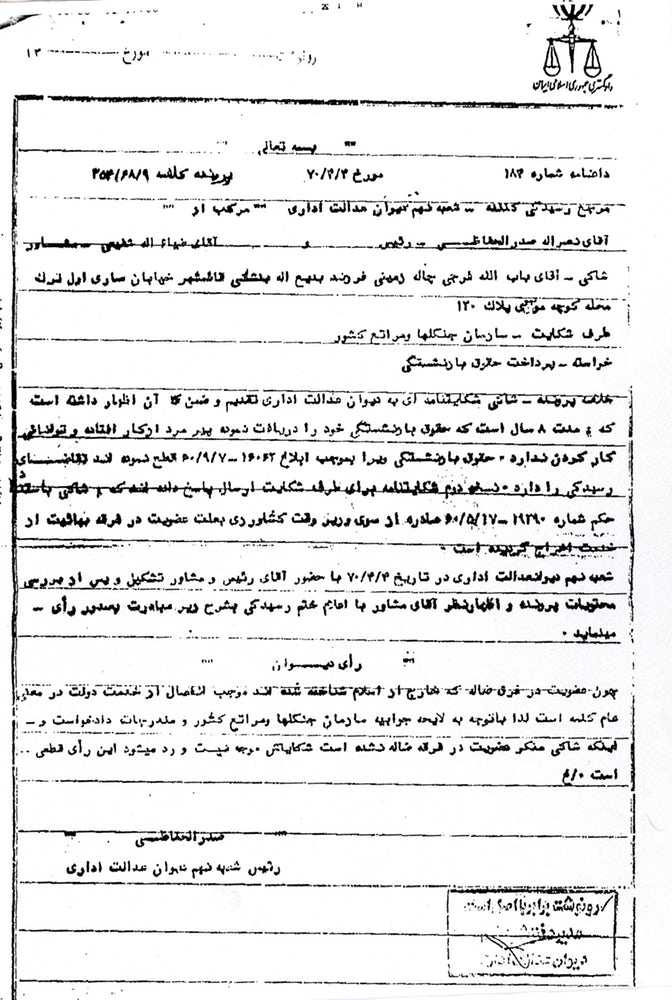 دادگستری جمهوری اسلامی ایران
رونوشت مورخ ۱۳
بسمه تعالی
دادنامه شماره ۱۸۴ مورخ ۷۰/۴/۴ پرونده کلاسه ۳۵۴/۶۸/۹
مرجع رسیدگی کننده – شعبه نهم دیوان عدالت اداری " مرکب از "
آقای نصراله صدرالحفاظی – رئیس و – آقای ضیاء اله شفیعی – مشاور
شاکی – آقای باب الله فرجی چاله زمینی فرزند بدیع اله بنشانی قائمشهر خیابان ساری اول ترک
محله کوچه پلاک ۱۲۰
طرف شکایت – سازمان جنگلها ومراتع کشور
خواسته – پرداخت حقوق بازنشستگی
خلاصه پرونده – شاکی شکایتنامه ای به دیوان عدالت اداری تقدیم و ضمن آن اظهار داشته است
که مدت ۸ سال است که حقوق بازنشستگی خود را دریافت ننموده پیر مرد ازکار افتاده و توانائی
کار کردن ندارد ۰ حقوق بازنشستگی ویرا بموجب ابلاغ ۱۶۰۶۲ – ۶۰/۹/۷ قطع نموده اند تقاضای
رسیدگی را دارد ۰ نسخه دوم شکایتنامه برای طرف شکایت ارسال پاسخ داده اند که شاکی
حکم شماره ۱۹۲۹۰ – ۶۰/۵/۱۷ صادره از سوی وزیر وقت کشاورزی بعلت عضویت در فرقه بهائیت از
خدمت اخراج گردیده است ۰
شعبه نهم دیوانعدالت اداری در تاریخ ۷۰/۴/۴ با حضور آقای رئیس و مشاور تشکیل و پس از بررسی
محتویات پرونده و اظهارنظر آقای مشاور با اعلام ختم رسیدگی بشرح زیر مبادرت بصدور رأی –
مینماید ۰
" رأی دیوان "
چون عضویت در فرق ضاله که خارج از اسلام شناخته شده اند موجب انفصال از خدمت دولت در معنی
عام کلمه است لذا باتوجه به لایحه جوابیه سازمان جنگلها ومراتع کشور و مندرجات دادخواست و –
اینکه شاکی منکر عضویت در فرقه ضاله نشده است شکایتش موجه نیست و رد میشود این رأی قطعی
است
صدرالحفاظی
رئیس شعبه نهم دیوان عدالت اداری
رونوشت برابر با اصل است
مدیر دفتر
دیوان عدالت اداری